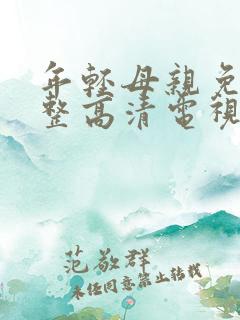 年輕母親免
整高清電視
范敬群
未任同意禁止转载